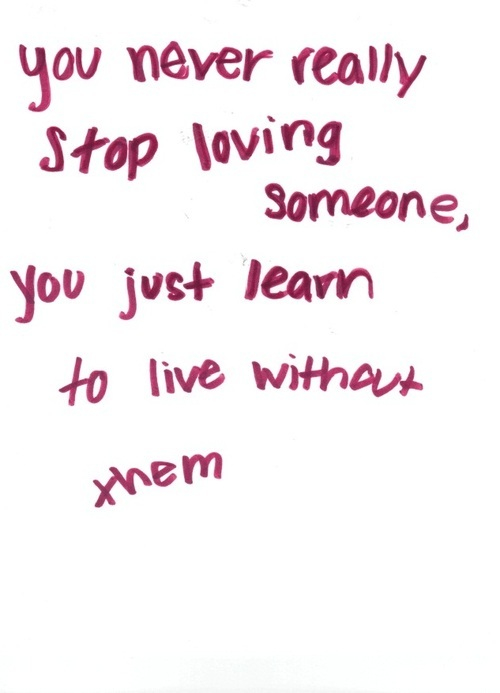 you never really
stop loving
someone,
you just learn
to live without
them